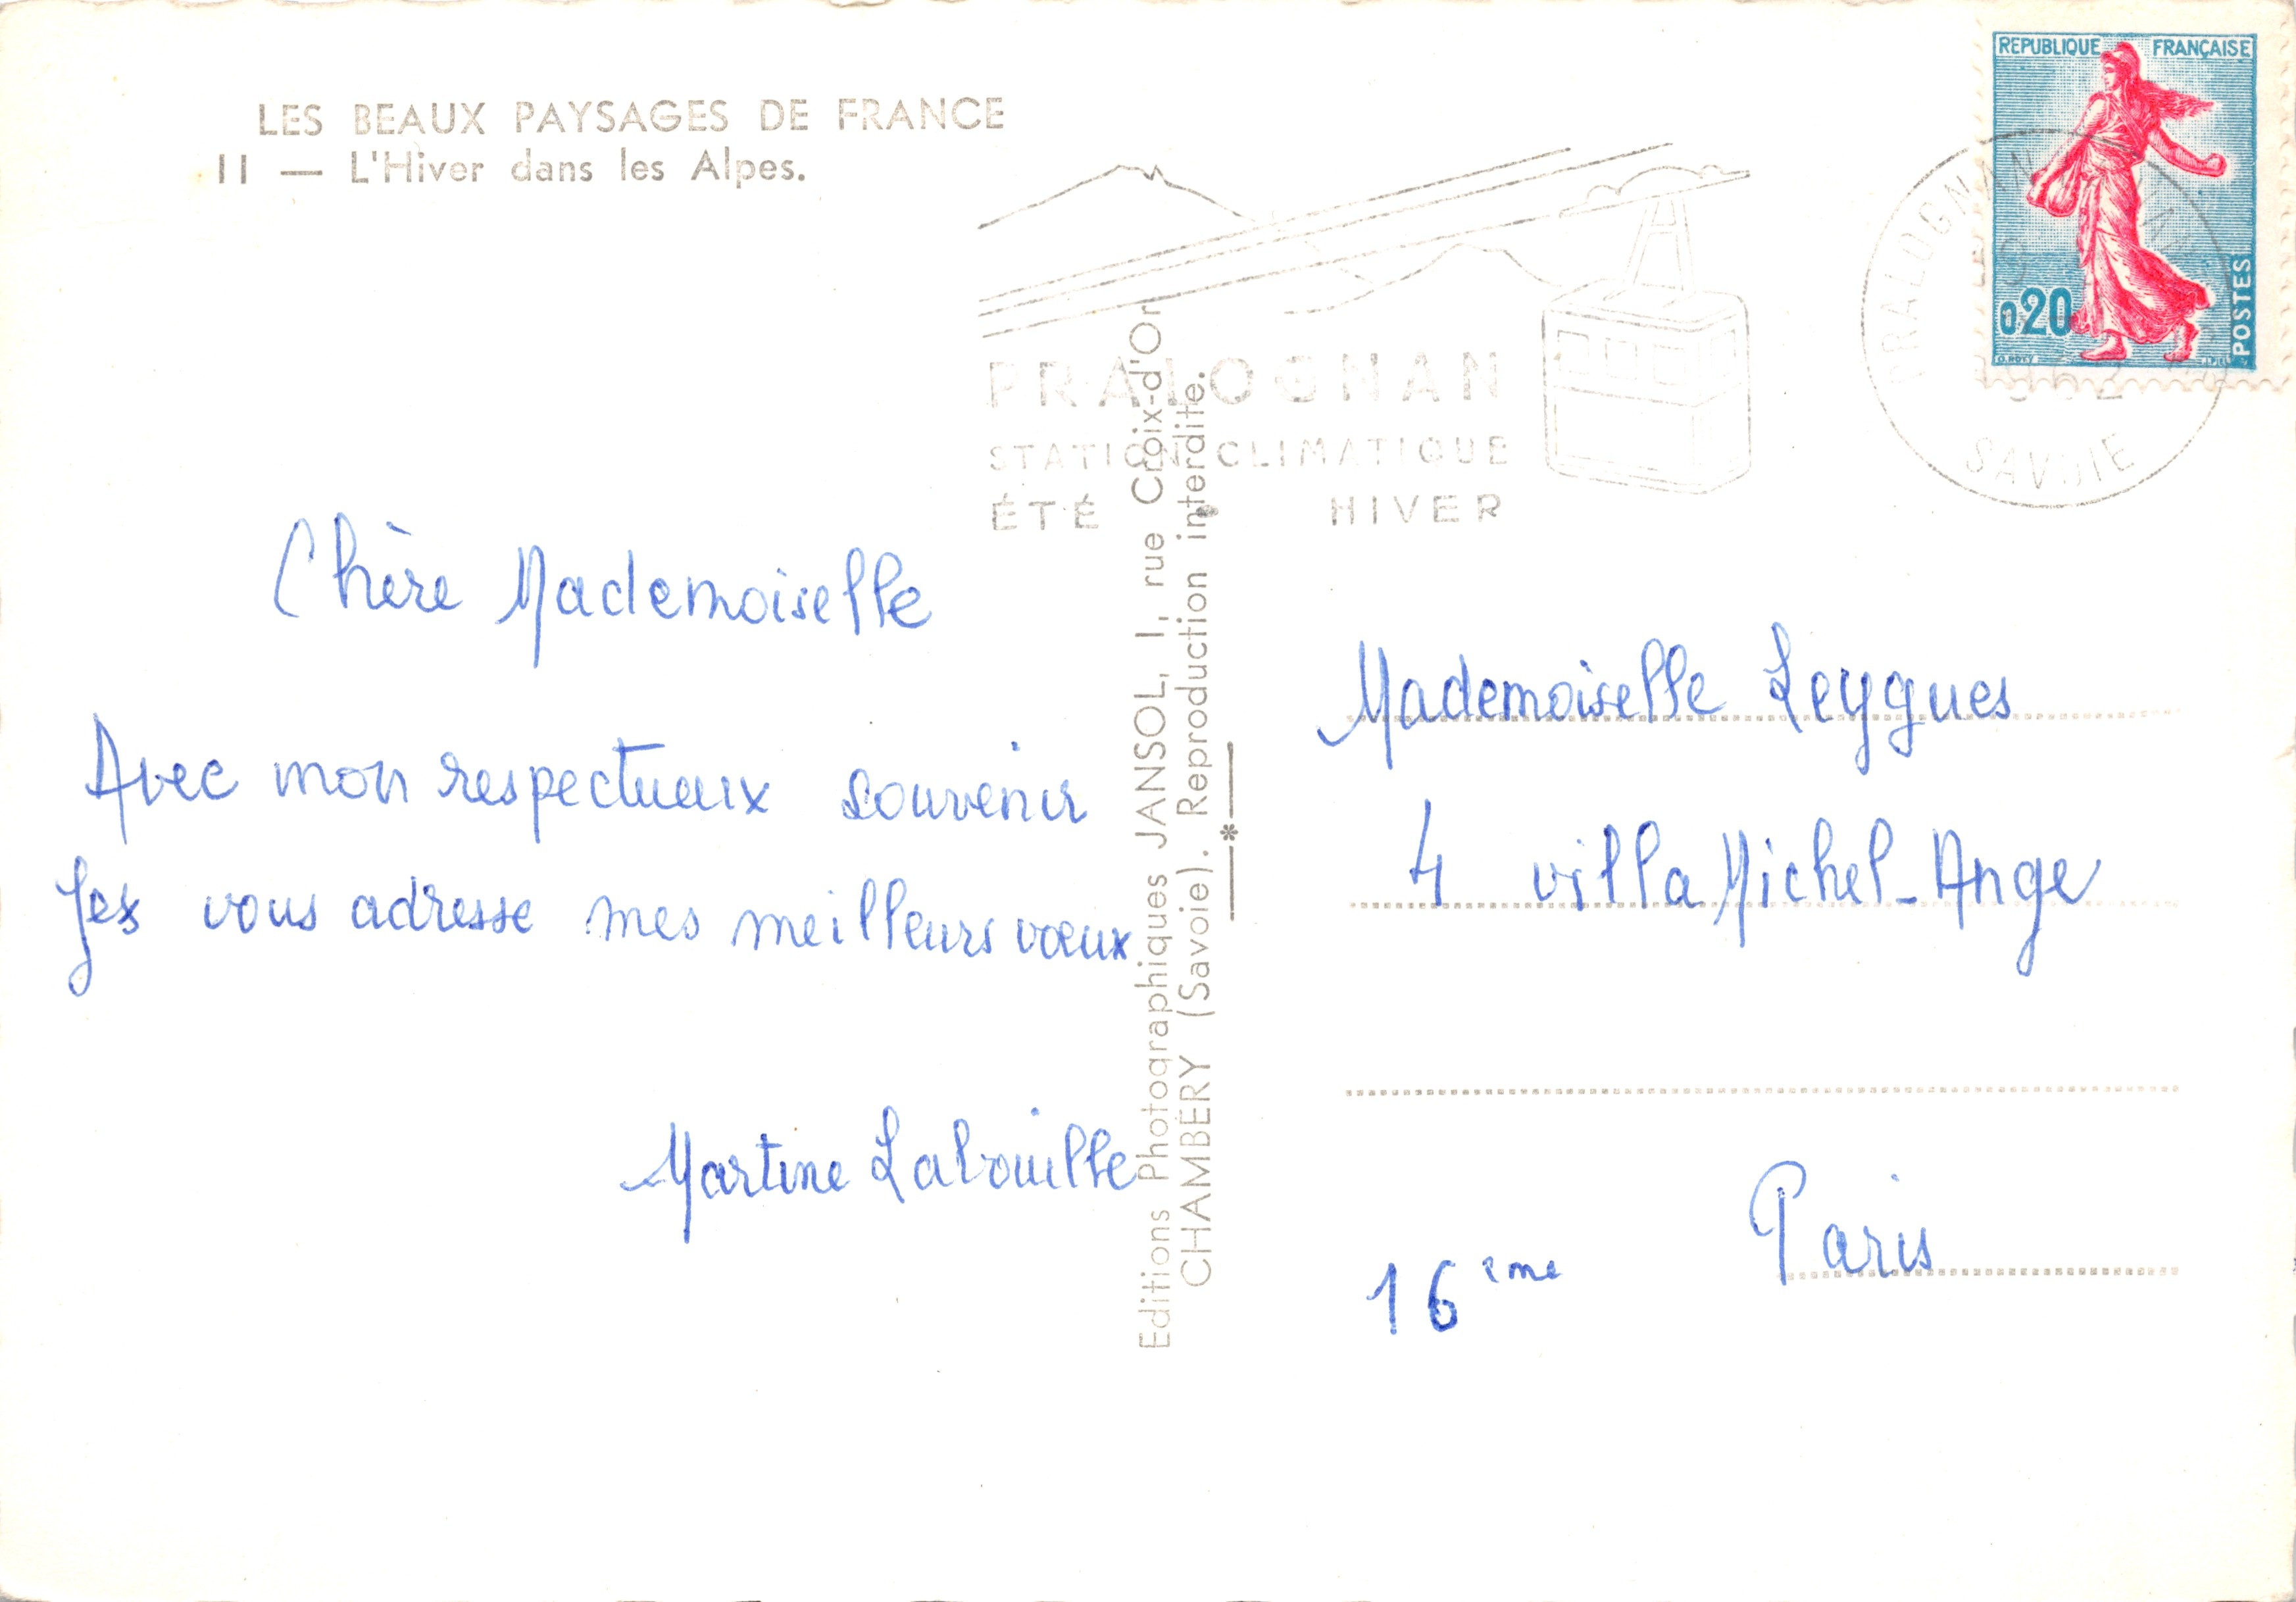 LES BEAUX PAYSAGES DE FRANCE
11 — L'Hiver dans les Alpes.
REPUBLIQUE FRANÇAISE
0,20
POSTES
PRALOGNAN
STATION CLIMATIQUE
ÉTÉ • HIVER
PRALOGNAN
SAVOIE
Chère Mademoiselle
Avec mon respectueux souvenir
Jex vous adresse mes meilleurs vœux
Martine
Editions Photographiques JANSOL, 1, rue Croix-d'Or
CHAMBÉRY (Savoie). Reproduction interdite.
Mademoiselle Leygues
4 villa Michel-Ange
Paris
16ème